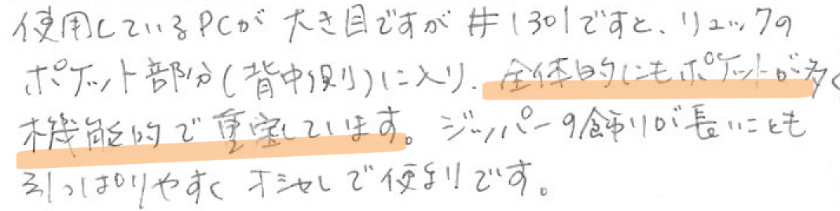 使用しているPCが大き目ですが#1301ですと、リュックの
ポケット部分(背中側)に入り、全体的にもポケットが多く
機能的で重宝しています。ジッパーの飾りが長いことも
引っぱりやすくオシャレで便利です。